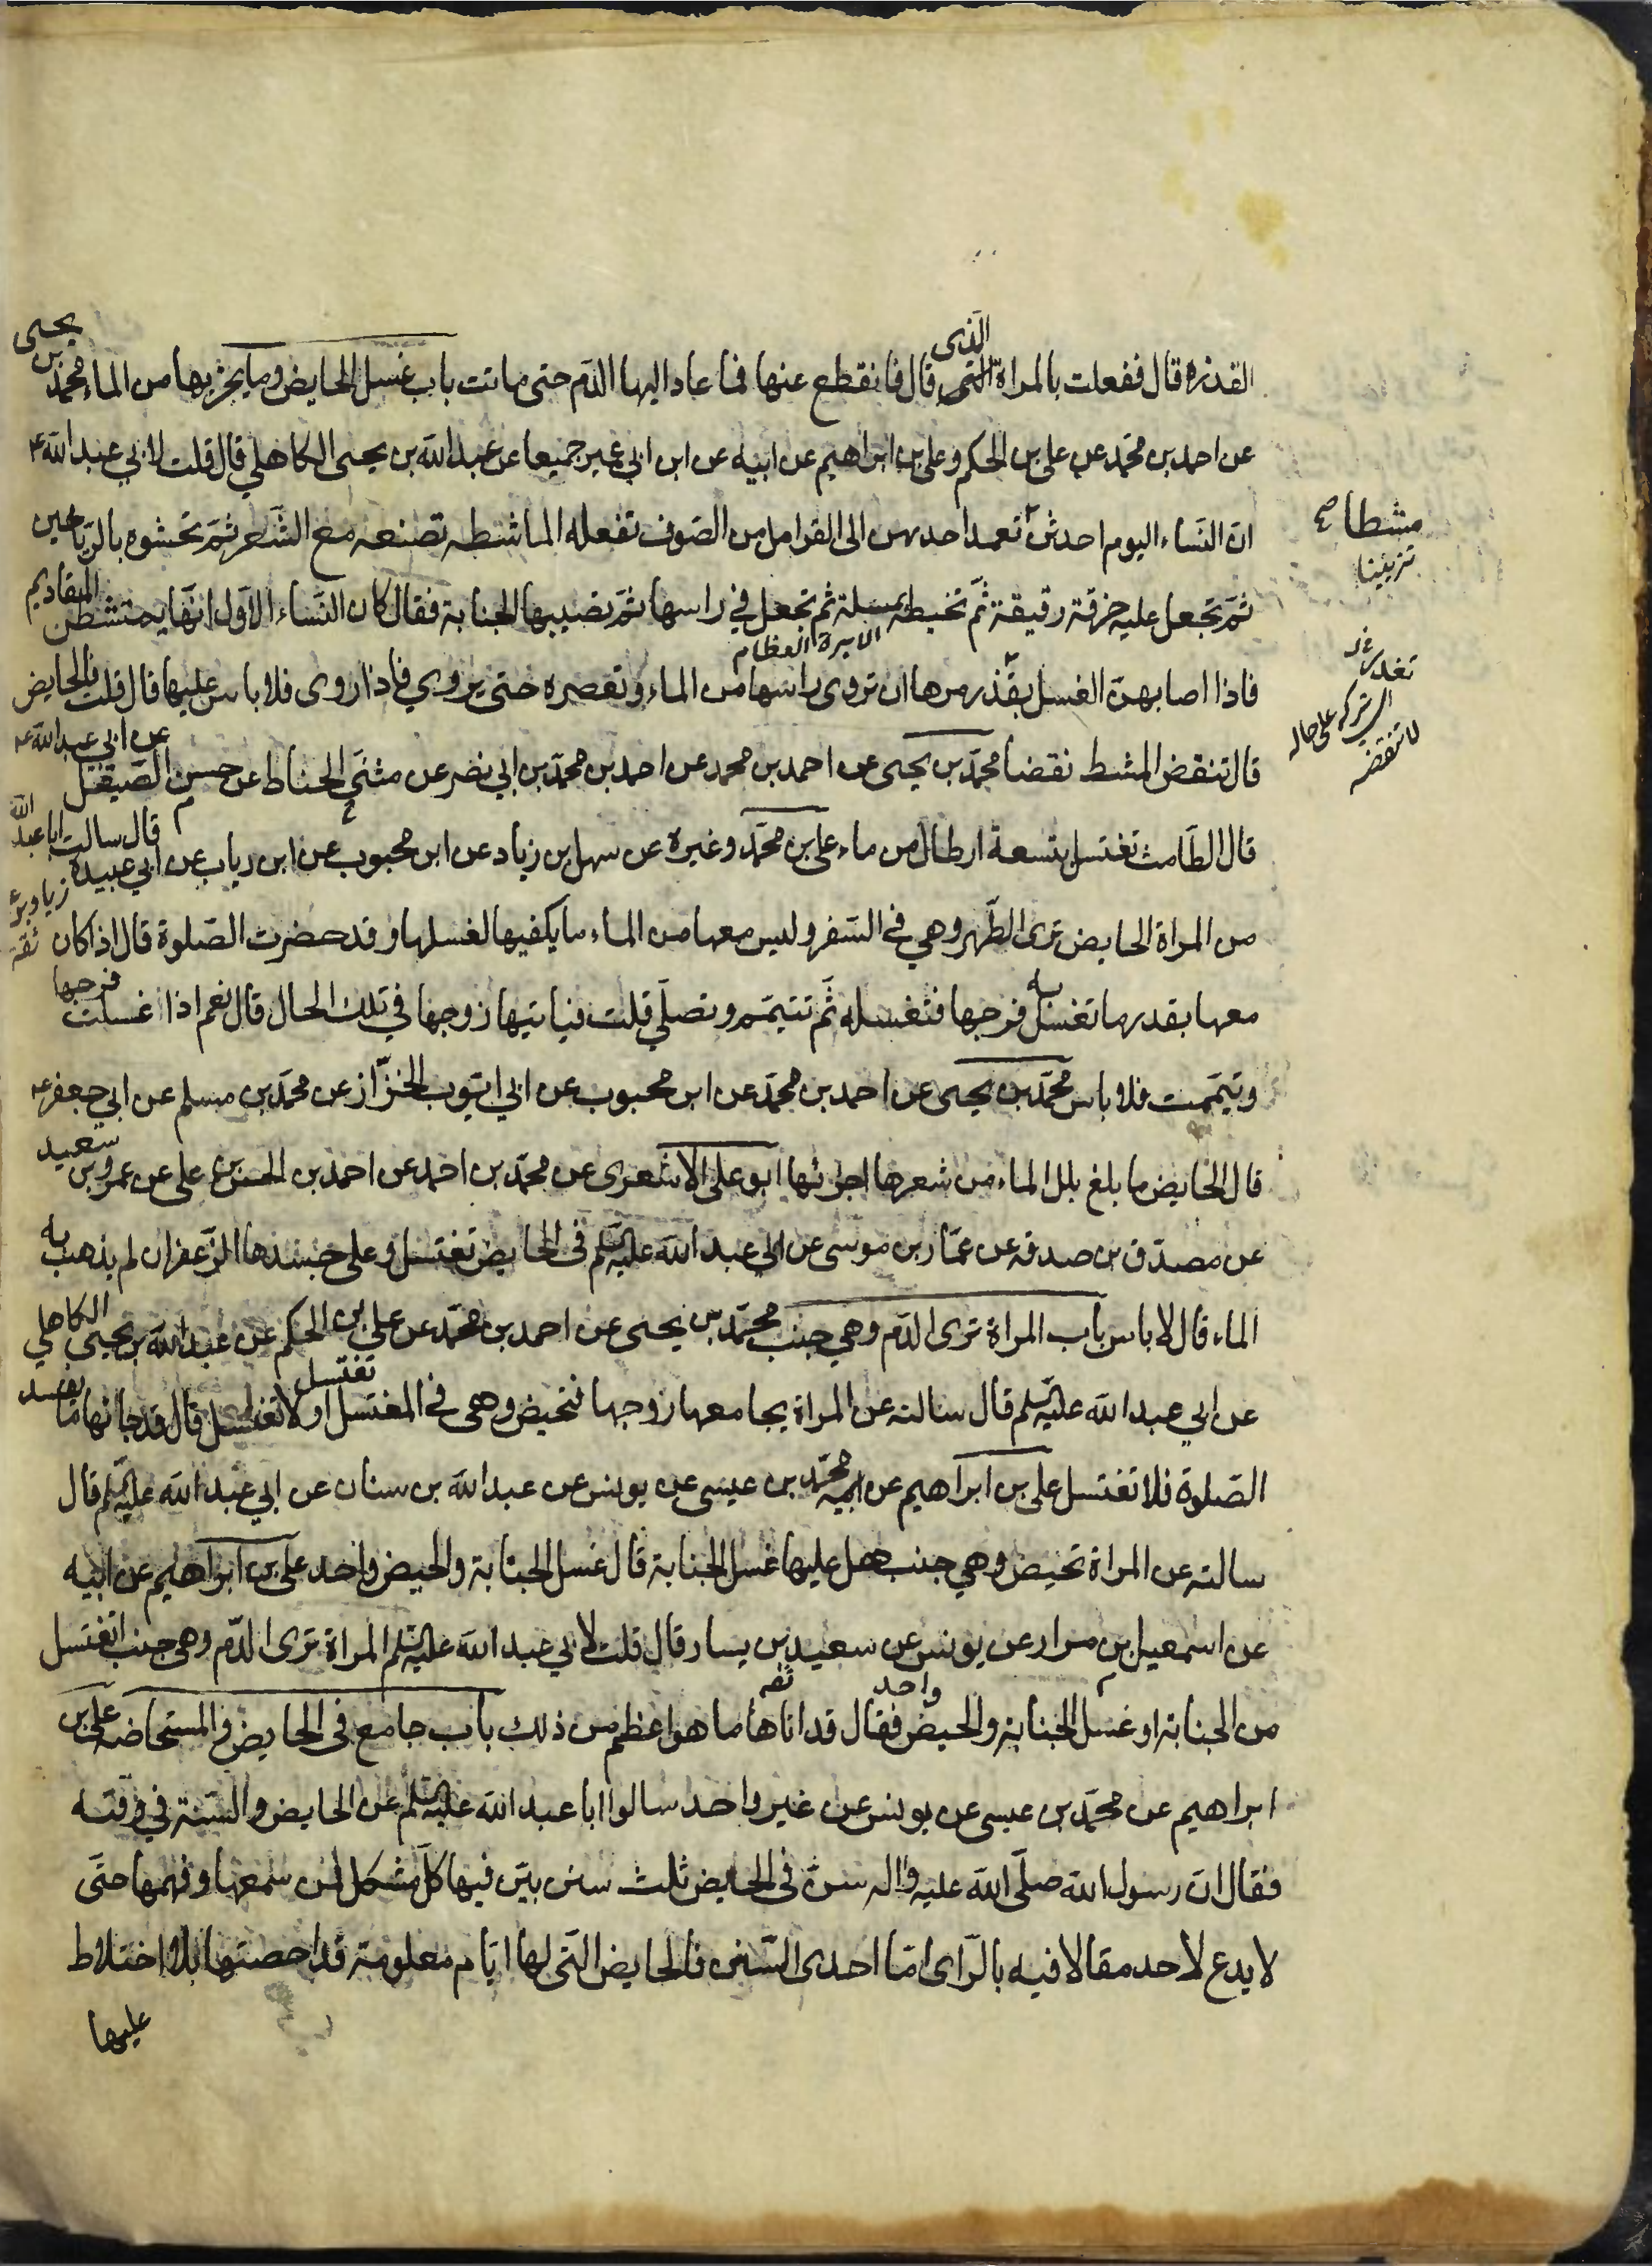 القذرة قال ففعلت بالمراة الذي قال فانقطع عنها فما عاد اليها الدم حتى ماتت باب غسل الحايض وما يجزيها من الماء محمد بن يحيى
عن احمد بن محمد عن علي بن الحكم وعلي بن ابراهيم عن ابيه عن ابن ابي عمير جميعا عن عبد الله بن يحيى الكاهلي قال قلت لابي عبد الله ع
ان النساء اليوم احدثن تعمد احديهن الى القرامل من الصوف تفعله الماشطه تصنعه مع الشعر ثم تحشوه بالرياحين
ثم تجعل عليه خرقة رقيقة ثم تخيطه بمسلة ثم تجعل في راسها ثم تصيبها الجنابة فقال كان النساء الاول انما يمتشطن المقاديم
الابرة العظام
فاذا اصابهن الغسل بقذر مرها ان تروى راسها من الماء وتعصره حتى يروي فاذا روى فلا باس عليها قال قلت فالحايض
قال تنقض المشط نقضا محمد بن يحيى عن احمد بن محمد عن احمد بن محمد بن ابي نصر عن مثنى الحناط عن حسن الصيقل عن ابي عبد الله ع
قال الطامث تغتسل بتسعة ارطال من ماء علي بن محمد وغيره عن سهل بن زياد عن ابن محبوب عن ابن رياب عن ابي عبيدة قال سالت ابا عبد الله
من المراة الحايض ترى الطهر وهي في السفر وليس معها من الماء ما يكفيها لغسلها وقد حضرت الصلوة قال اذا كان
معها بقدر ما تغسل به فرجها فتغسله ثم تتيمم وتصلي قلت فياتيها زوجها في تلك الحال قال نعم اذا غسلت فرجها
وتيممت فلا باس محمد بن يحيى عن احمد بن محمد عن ابن محبوب عن ابي ايوب الخزاز عن محمد بن مسلم عن ابي جعفر ع
قال الحايض ما بلغ بلل الماء من شعرها اجزائها ابو علي الاشعرى عن محمد بن احمد عن احمد بن الحسن بن علي عن عمرو بن سعيد
عن مصدق بن صدقه عن عمار بن موسى عن ابي عبد الله عليه السلم في الحايض تغتسل وعلى جسدها الزعفران لم يذهب به
الماء قال لا باس باب المراة ترى الدم وهي جنب محمد بن يحيى عن احمد بن محمد عن علي بن الحكم عن عبد الله بن يحيى الكاهلي
عن ابي عبد الله عليه السلم قال سالته عن المراة يجامعها زوجها فتحيض وهي في المغتسل تغتسل او لا تغتسل قال قد جائها ما يفسد
الصلوة فلا تغتسل علي بن ابراهيم عن محمد بن عيسى عن يونس عن عبد الله بن سنان عن ابي عبد الله عليه السلم قال
سالته عن المراة تحيض وهي جنب هل عليها غسل الجنابة قال غسل الجنابة والحيض واحد علي بن ابراهيم عن ابيه
عن اسمعيل بن مرار عن يونس عن سعيد بن يسار قال قلت لابي عبد الله عليه السلم المراة ترى الدم وهي جنب اتغتسل
من الجنابة او غسل الجنابة والحيض واحد فقال قد اتاها ما هو اعظم من ذلك باب جامع في الحايض والمستحاضه علي بن
ابراهيم عن محمد بن عيسى عن يونس عن غير واحد سالوا ابا عبد الله عليه السلم عن الحايض والسنة في وقته
فقال ان رسول الله صلى الله عليه واله سن في الحايض ثلث سنن بين فيها كل مشكل لمن سمعها وفهمها حتى
لا يدع لاحد مقالا فيه بالراى اما احدى السنن فالحايض التي لها ايام معلومة قد احصتها بلا اختلاط
عليها
مشطا
تزيينا
اى تتركه على حاله
لا تنقضه